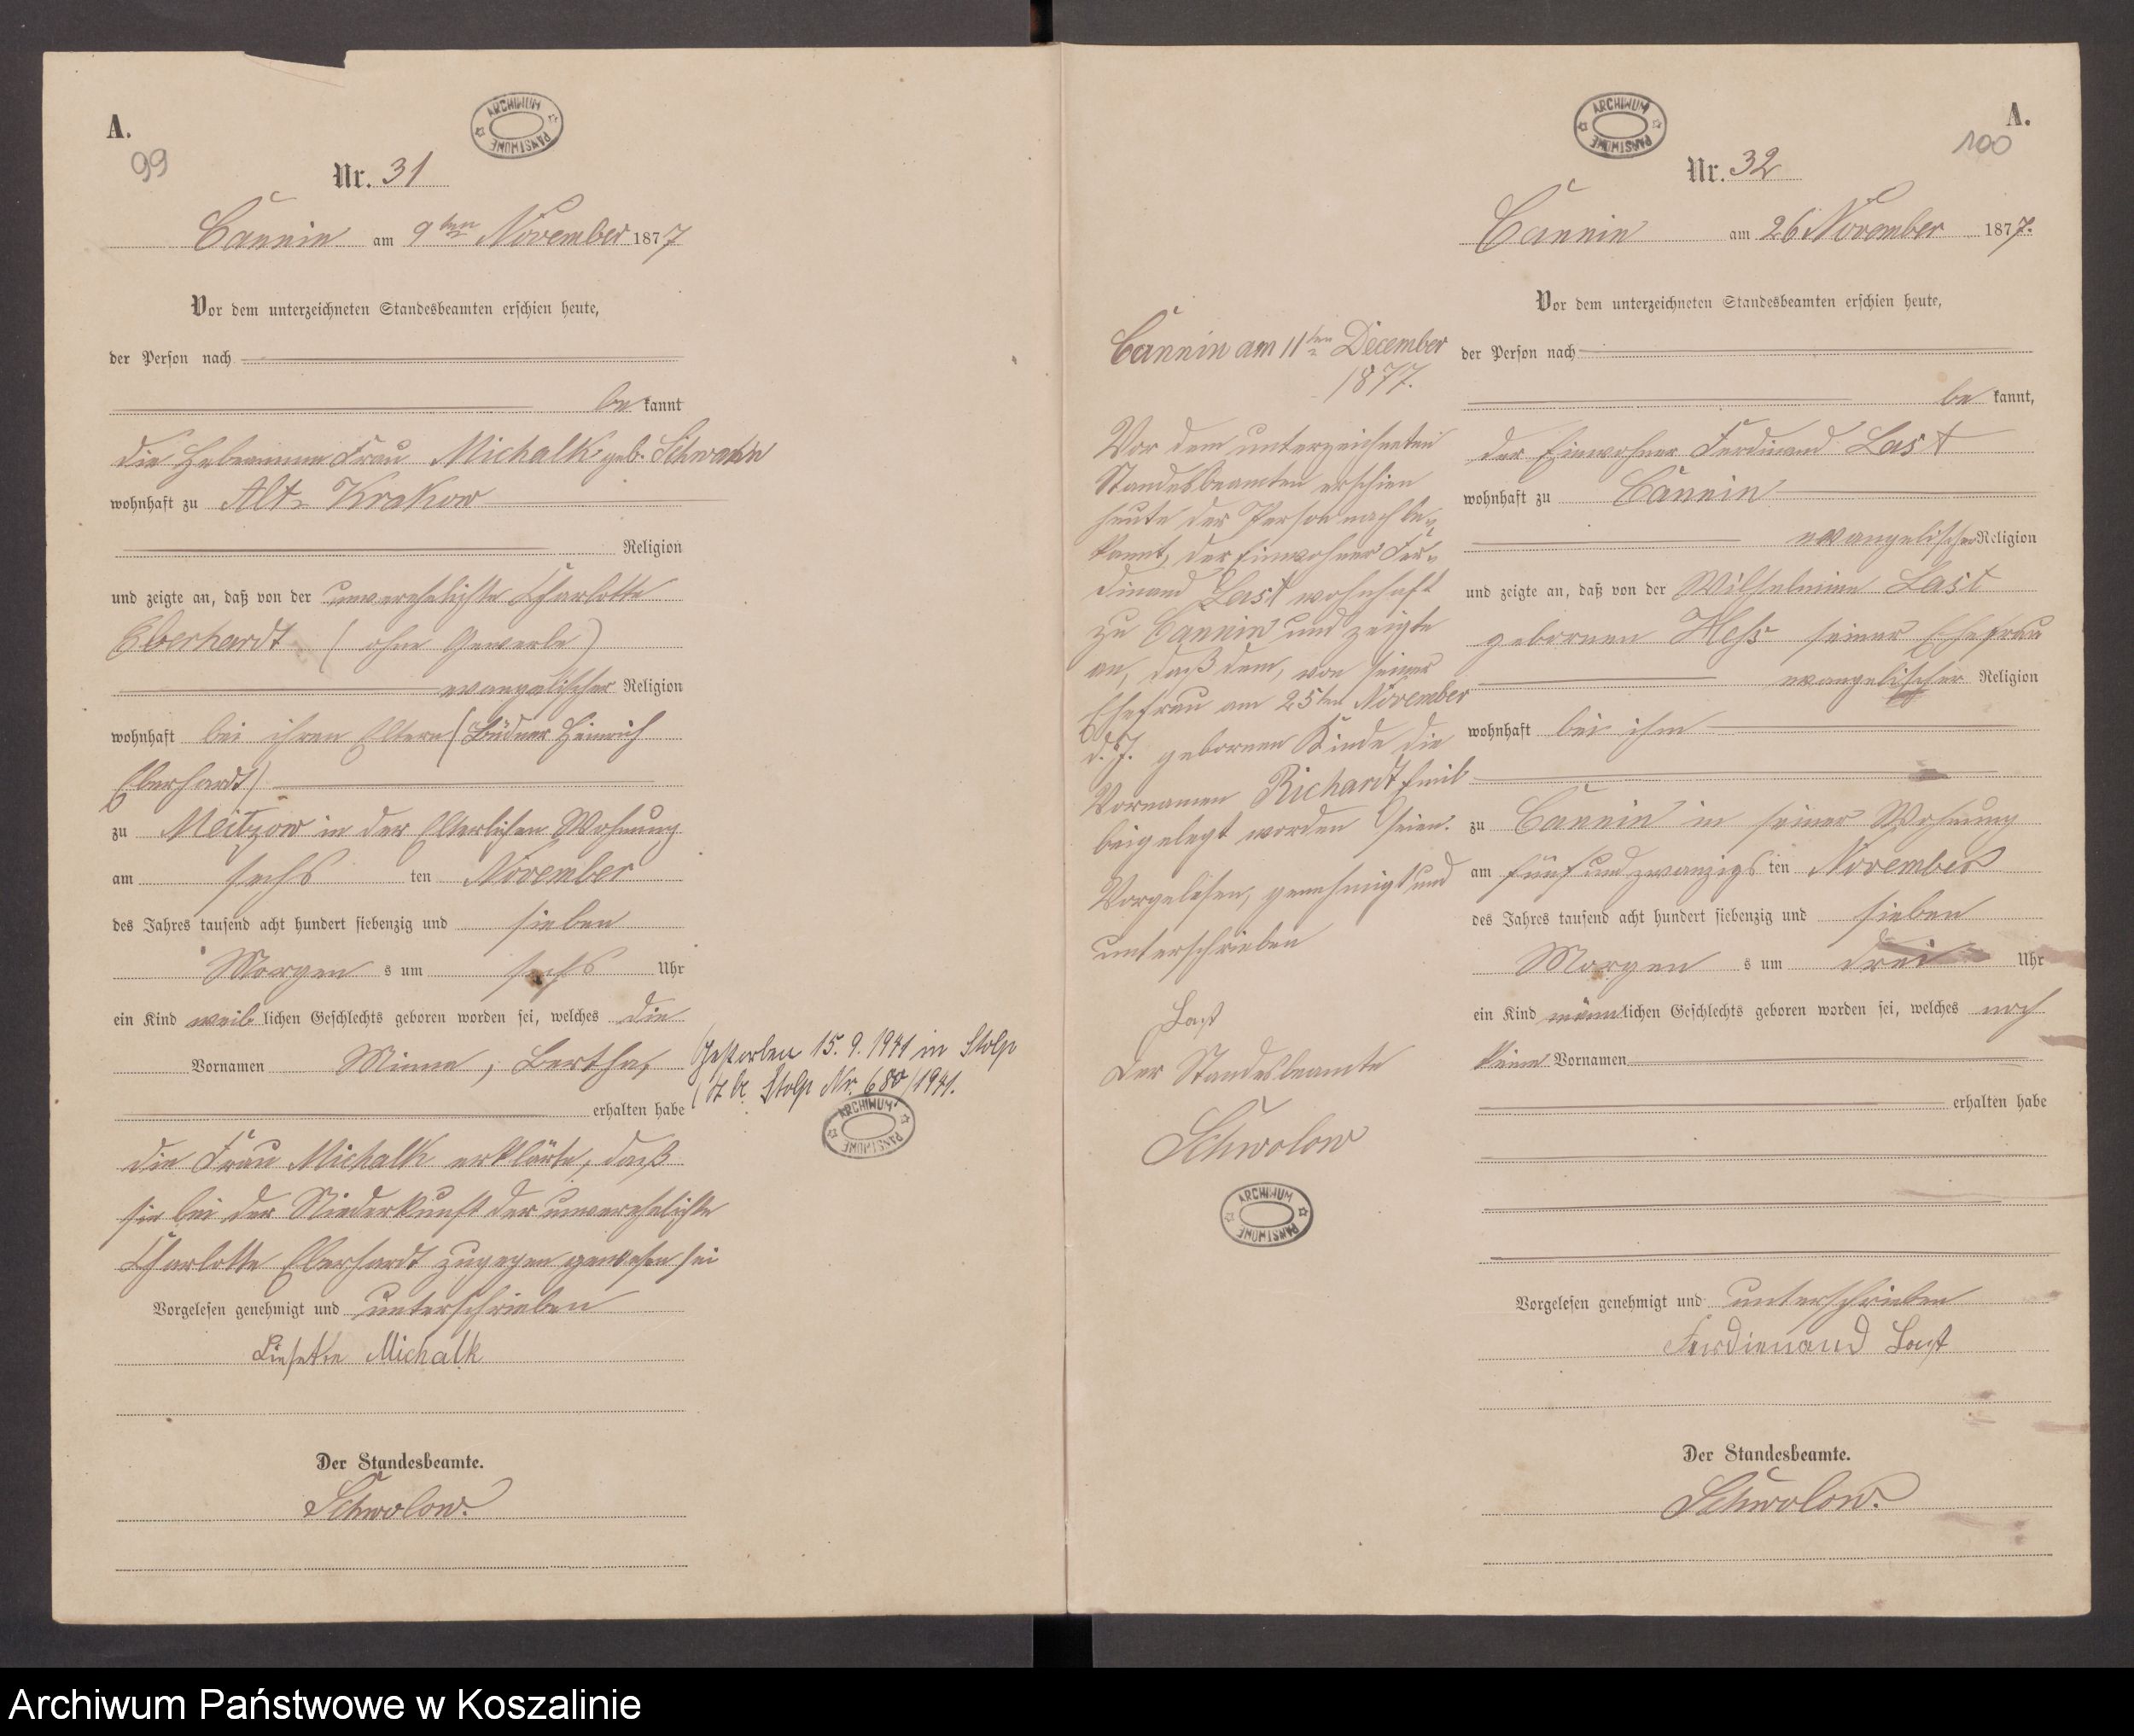 A.
99
ARCHIWUM PAŃSTWOWE
Nr. 31
Cannin am 9ten November 1877
Vor dem unterzeichneten Standesbeamten erschien heute,
der Person nach
be kannt
die Hebeamme Frau Michalk geb. Schwahn
wohnhaft zu Alt-Krakow
Religion
und zeigte an, daß von der unverehelichte Charlotte
Eberhardt (ohne Gewerbe)
evangelischer Religion
wohnhaft bei ihren Eltern (Büdner Heinrich
Eberhardt)
zu Meitzow in der Elterlichen Wohnung
am sechs ten November
des Jahres tausend acht hundert siebenzig und sieben
Morgen s um sechs Uhr
ein Kind weib lichen Geschlechts geboren worden sei, welches die
Vornamen Minna, Bertha,
erhalten habe
Gestorben 15. 9. 1941 in Stolp
Stolp Nr. 680/1941.
ARCHIWUM PAŃSTWOWE
die Frau Michalk erklärte, daß
sie bei der Niederkunft der unverehelichte
Charlotte Eberhardt zugegen gewesen sei
Vorgelesen genehmigt und unterschrieben
Liesette Michalk
Der Standesbeamte.
Schwolow.
A.
100
ARCHIWUM PAŃSTWOWE
Nr. 32
Cannin am 26 November 1877.
Vor dem unterzeichneten Standesbeamten erschien heute,
der Person nach
be kannt,
der Einwohner Ferdinand Last
wohnhaft zu Cannin
evangelischer Religion
und zeigte an, daß von der Wilhelmine Last
gebornen Hess seiner Ehefrau
evangelischer Religion
wohnhaft bei ihm
zu Cannin in seiner Wohnung
am fünfundzwanzigs ten November
des Jahres tausend acht hundert siebenzig und sieben
Morgen s um drei Uhr
ein Kind männ lichen Geschlechts geboren worden sei, welches noch
keine Vornamen
erhalten habe
Vorgelesen genehmigt und unterschrieben
Ferdienand Last
Der Standesbeamte.
Schwolow.
Cannin am 11ten December
1877.
Vor dem unterzeichneten
Standesbeamten erschien
heute der Person nach be-
kannt, der Einwohner Fer-
dinand Last wohnhaft
zu Cannin und zeigte
an, daß dem, von seiner
Ehefrau am 25ten November
d. J. gebornen Kinde die
Vornamen Richardt Emil
beigelegt worden seien.
Vorgelesen, genehmigt und
unterschrieben
Last
Der Standesbeamte
Schwolow
ARCHIWUM PAŃSTWOWE
Archiwum Państwowe w Koszalinie